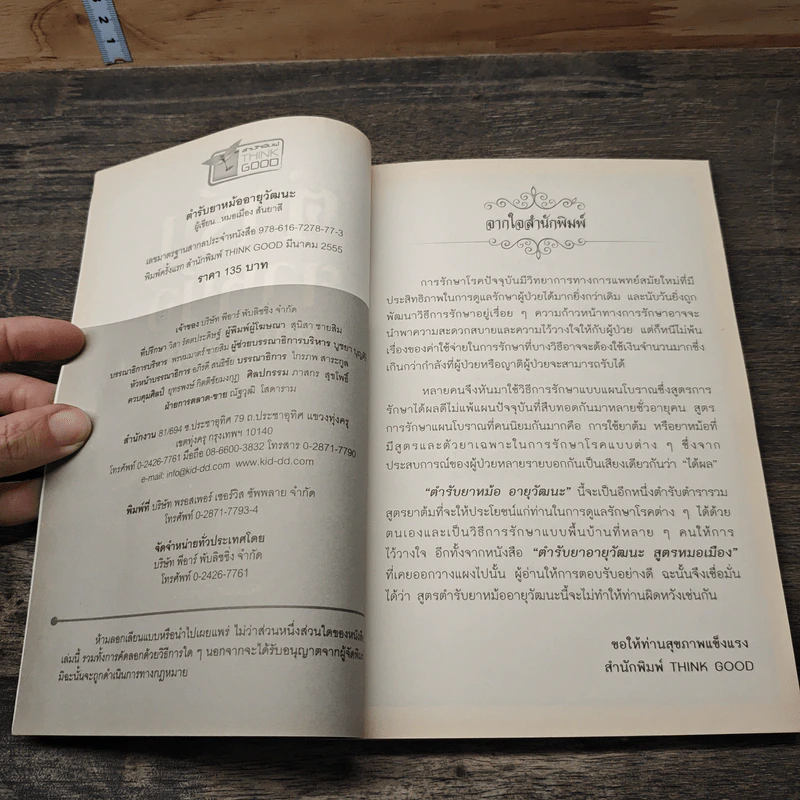 สำนักพิมพ์
THINK
GOOD
ตำรับยาหม้ออายุวัฒนะ
ผู้เขียน...หมอเมือง สันยาสี
เลขมาตรฐานสากลประจำหนังสือ 978-616-7278-77-3
พิมพ์ครั้งแรก สำนักพิมพ์ THINK GOOD มีนาคม 2555
ราคา 135 บาท
เจ้าของ บริษัท พีอาร์ พับลิชชิ่ง จำกัด
ที่ปรึกษา วิสา รัตตประดิษฐ์ ผู้พิมพ์ผู้โฆษณา สุนิสา ชายสิม
บรรณาธิการบริหาร พรหมมาตร์ ชายสิม ผู้ช่วยบรรณาธิการบริหาร นูชยา
หัวหน้าบรรณาธิการ อภิรดี สนธิชัย บรรณาธิการ ไกรภพ สาระกูล
ควบคุมศิลป์ ยุทธพงษ์ กิตติชัยมงกุฎ ศิลปกรรม ภาสกร สุขโพธิ์
ฝ่ายการตลาด-ขาย ณัฐวุฒิ โสดาราม
สำนักงาน 81/694 ซ.ประชาอุทิศ 79 ถ.ประชาอุทิศ แขวงทุ่งครุ
เขตทุ่งครุ กรุงเทพฯ 10140
โทรศัพท์ 0-2426-7761 มือถือ 08-6600-3832 โทรสาร 0-2871-7790
e-mail: info@kid-dd.com www.kid-dd.com
พิมพ์ที่ บริษัท พรอสเพอร์ เซอร์วิส ซัพพลาย จำกัด
โทรศัพท์ 0-2871-7793-4
จัดจำหน่ายทั่วประเทศโดย
บริษัท พีอาร์ พับลิชชิ่ง จำกัด
โทรศัพท์ 0-2426-7761
ห้ามลอกเลียนแบบหรือนำไปเผยแพร่ ไม่ว่าส่วนหนึ่งส่วนใดของหนังสือ
เล่มนี้ รวมทั้งการคัดลอกด้วยวิธีการใด ๆ นอกจากจะได้รับอนุญาตจากผู้จัดพิมพ์
มิฉะนั้นจะถูกดำเนินการทางกฎหมาย
จากใจสำนักพิมพ์
การรักษาโรคปัจจุบันมีวิทยาการทางการแพทย์สมัยใหม่ที่มี
ประสิทธิภาพในการดูแลรักษาผู้ป่วยได้มากยิ่งกว่าเดิม และนับวันยิ่งถูก
พัฒนาวิธีการรักษาอยู่เรื่อย ๆ ความก้าวหน้าทางการรักษาอาจจะ
นำพาความสะดวกสบายและความไว้วางใจให้กับผู้ป่วย แต่ก็หนีไม่พ้น
เรื่องของค่าใช้จ่ายในการรักษาที่บางวิธีอาจจะต้องใช้เงินจำนวนมากซึ่ง
เกินกว่ากำลังที่ผู้ป่วยหรือญาติผู้ป่วยจะสามารถรับได้
หลายคนจึงหันมาใช้วิธีการรักษาแบบแผนโบราณซึ่งสูตรการ
รักษาได้ผลดีไม่แพ้แผนปัจจุบันที่สืบทอดกันมาหลายชั่วอายุคน สูตร
การรักษาแผนโบราณที่คนนิยมกันมากคือ การใช้ยาต้ม หรือยาหม้อที่
มีสูตรและตัวยาเฉพาะในการรักษาโรคแบบต่าง ๆ ซึ่งจาก
ประสบการณ์ของผู้ป่วยหลายรายบอกกันเป็นเสียงเดียวกันว่า "ได้ผล"
"ตำรับยาหม้อ อายุวัฒนะ" นี้จะเป็นอีกหนึ่งตำรับตำรารวม
สูตรยาต้มที่จะให้ประโยชน์แก่ท่านในการดูแลรักษาโรคต่าง ๆ ได้ด้วย
ตนเองและเป็นวิธีการรักษาแบบพื้นบ้านที่หลาย ๆ คนให้การ
ไว้วางใจ อีกทั้งจากหนังสือ "ตำรับยาอายุวัฒนะ สูตรหมอเมือง"
ที่เคยออกวางแผงไปนั้น ผู้อ่านให้การตอบรับอย่างดี ฉะนั้นจึงเชื่อมั่น
ได้ว่า สูตรตำรับยาหม้ออายุวัฒนะนี้จะไม่ทำให้ท่านผิดหวังเช่นกัน
ขอให้ท่านสุขภาพแข็งแรง
สำนักพิมพ์ THINK GOOD